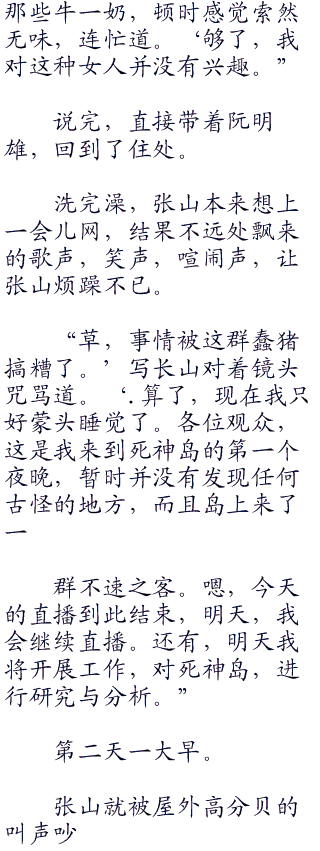 那些牛一奶，顿时感觉索然
无味，连忙道。‘够了，我
对这种女人并没有兴趣。”
说完，直接带着阮明
雄，回到了住处。
洗完澡，张山本来想上
一会儿网，结果不远处飘来
的歌声，笑声，喧闹声，让
张山烦躁不已。
“草，事情被这群蠢猪
搞糟了。’写长山对着镜头
咒骂道。‘.算了，现在我只
好蒙头睡觉了。各位观众，
这是我来到死神岛的第一个
夜晚，暂时并没有发现任何
古怪的地方，而且岛上来了
一
群不速之客。嗯，今天
的直播到此结束，明天，我
会继续直播。还有，明天我
将开展工作，对死神岛，进
行研究与分析。”
第二天一大早。
张山就被屋外高分贝的
叫声吵